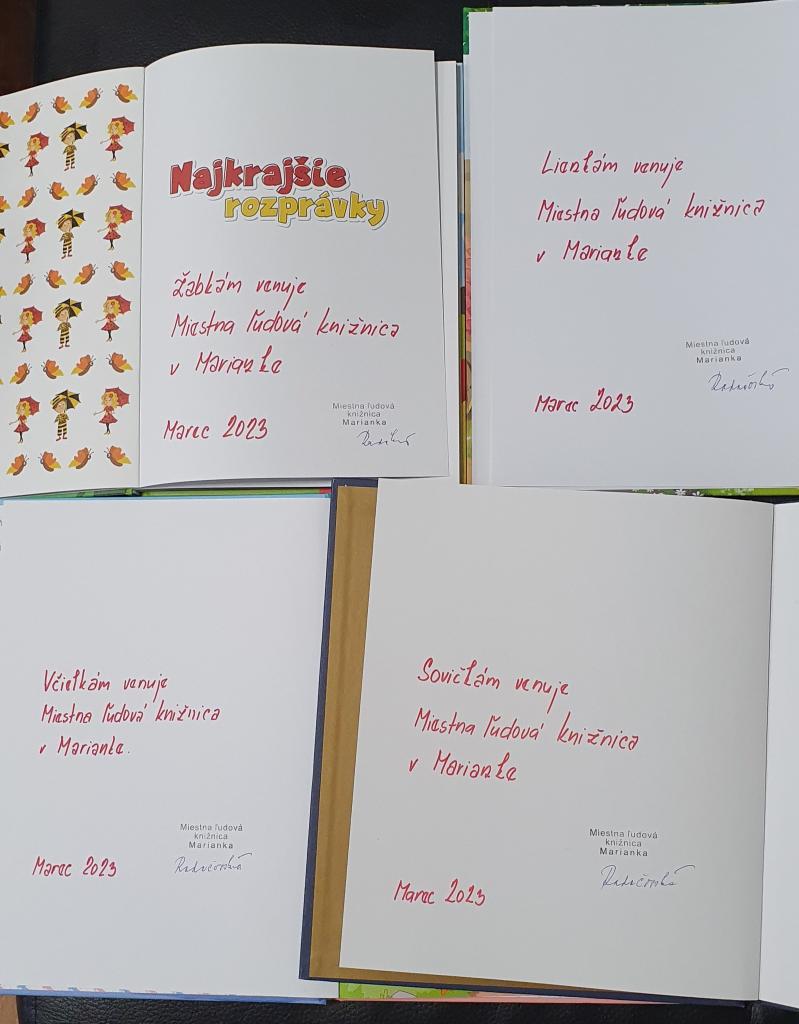 Najkrajšie
rozprávky
Žabkám venuje
Miestna ľudová knižnica
v Marianke
Miestna ľudová
knižnica
Marianka
Marec 2023
Liankám venuje
Miestna ľudová knižnica
v Marianke
Miestna ľudová
knižnica
Marianka
Marec 2023
Včielkám venuje
Miestna ľudová knižnica
v Marianke.
Miestna ľudová
knižnica
Marianka
Marec 2023
Sovičkám venuje
Miestna ľudová knižnica
v Marianke
Miestna ľudová
knižnica
Marianka
Marec 2023